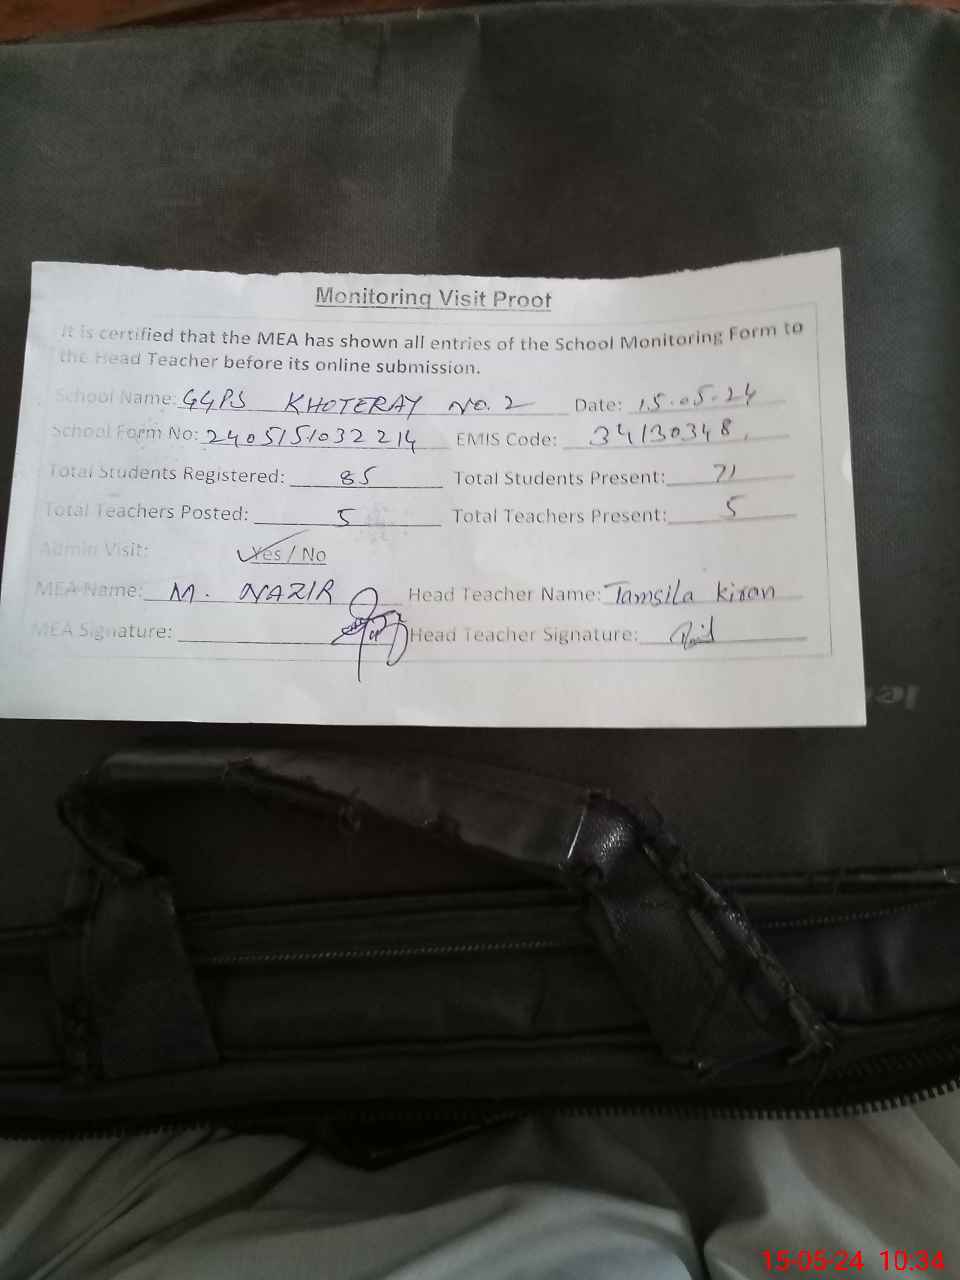 Monitoring Visit Proof
It is certified that the MEA has shown all entries of the School Monitoring Form to
the Head Teacher before its online submission.
School Name: GGPS KHOTERAY NO. 2 Date: 15.05.24
School Form No: 2405151032214 EMIS Code: 34130348
Total Students Registered: 85 Total Students Present: 71
Total Teachers Posted: 5 Total Teachers Present: 5
Admin Visit: Yes / No
MEA Name: M. NAZIR Head Teacher Name: Tamsila Kiran
MEA Signature: Head Teacher Signature:
15-05-24 10:34